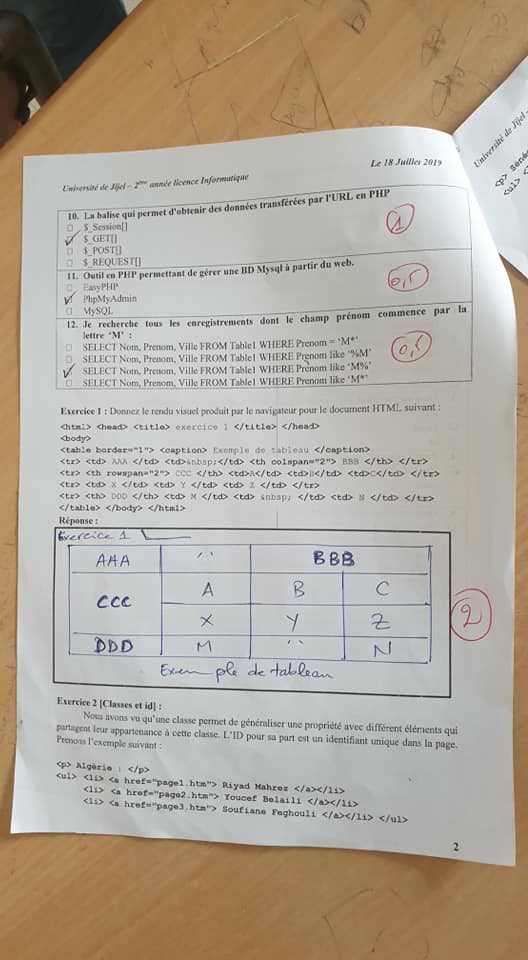 Université de Jijel – 2ème année licence Informatique
Le 18 Juilles 2019
10. La balise qui permet d'obtenir des données transférées par l'URL en PHP
$_Session[]
$_GET[]
$_POST[]
$_REQUEST[]
1
11. Outil en PHP permettant de gérer une BD Mysql à partir du web.
EasyPHP
PhpMyAdmin
MySQL
0,5
12. Je recherche tous les enregistrements dont le champ prénom commence par la
lettre ‘M’ :
SELECT Nom, Prenom, Ville FROM Table1 WHERE Prenom = ‘M*’
SELECT Nom, Prenom, Ville FROM Table1 WHERE Prenom like ‘%M’
SELECT Nom, Prenom, Ville FROM Table1 WHERE Prenom like ‘M%’
SELECT Nom, Prenom, Ville FROM Table1 WHERE Prenom like ‘M*’
0,5
Exercice 1 : Donnez le rendu visuel produit par le navigateur pour le document HTML suivant :
<html> <head> <title> exercice 1 </title> </head>
<body>
<table border="1"> <caption> Exemple de tableau </caption>
<tr> <td> AAA </td> <td>&nbsp;</td> <th colspan="2"> BBB </th> </tr>
<tr> <th rowspan="2"> CCC </th> <td>A</td> <td>B</td> <td>C</td> </tr>
<tr> <td> X </td> <td> Y </td> <td> Z </td> </tr>
<tr> <th> DDD </th> <td> M </td> <td> &nbsp; </td> <td> N </td> </tr>
</table> </body> </html>
Réponse :
Exercice 1
AAA BBB
CCC A B C
X Y Z
DDD M N
Exemple de tableau
2
Exercice 2 [Classes et id] :
Nous avons vu qu'une classe permet de généraliser une propriété avec différent éléments qui
partagent leur appartenance à cette classe. L'ID pour sa part est un identifiant unique dans la page.
Prenons l'exemple suivant :
<p> Algérie : </p>
<ul> <li> <a href="page1.htm"> Riyad Mahrez </a></li>
<li> <a href="page2.htm"> Youcef Belaili </a></li>
<li> <a href="page3.htm"> Soufiane Feghouli </a></li> </ul>
2
Université de Jijel
<ul>